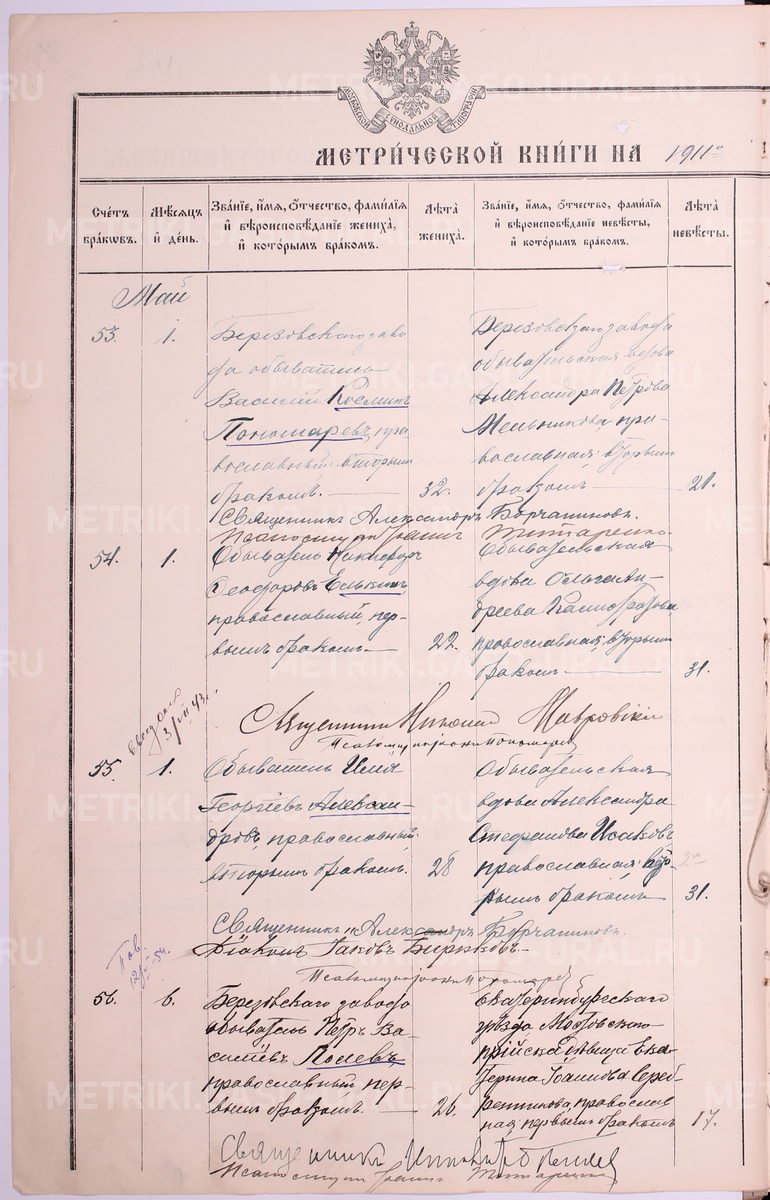 МЕТРИ́ЧЕСКОЙ КНИ́ГИ НА 1911
Счетъ бракѡвъ.
Мѣсяцъ и день.
Зва́нїе, и́мя, ѻ́тчество, фами́лїя и҆ вѣроисповѣ́данїе жениха̀, и҆ кото́рымъ бра́комъ.
Лѣта̀ жениха̀.
Зва́нїе, и́мя, ѻ́тчество, фами́лїя и҆ вѣроисповѣ́данїе невѣ́сты, и҆ кото́рымъ бра́комъ.
Лѣта̀ невѣ́сты.
Май
53.
1.
Березовскаго заво
да обыватель
Василий Космин
Пономаревъ, пра
вославный вторым
браком.
32.
Березовскаго завода
обывательская вдова
Александра Петрова
Мельникова пра-
вославная, вторым
браком
21.
Священникъ Александръ Борчаниновъ.
Псаломщикъ Титаренко
54.
1.
Обыватель Никифоръ
Феодоровъ Елькинъ,
православный, пер-
вымъ бракомъ
22.
Обывательская
вдова Ольга Ан-
дреева
православная, вторым
браком
31.
Священник Николай Лавровскій
Псаломщик Пономарев
3/VII 43 г.
55.
1.
Обыватель Илья
Георгіевъ Алексан-
дровъ, православный
вторымъ бракомъ.
28
Обывательская
вдова Александра
Стефанова Исаковъ
православная, вто-
рымъ бракомъ
31.
Священникъ Александръ Борчаниновъ.
Діаконъ Іаковъ Бирюковъ
Псаломщик Пономарев
Пов.
56.
6.
Березовскаго завода
обыватель Петръ Ва-
сильевъ Полевъ,
православный пер-
вымъ бракомъ
26.
Екатеринбургскаго
уѣзда Мостовскаго
прійска дѣвица Ека
терина Іоаннова Сереб-
ренникова, православ
ная первымъ бракомъ
17.
Священникъ
Псаломщикъ Титаренко
METRIKI.GASO-URAL.RU